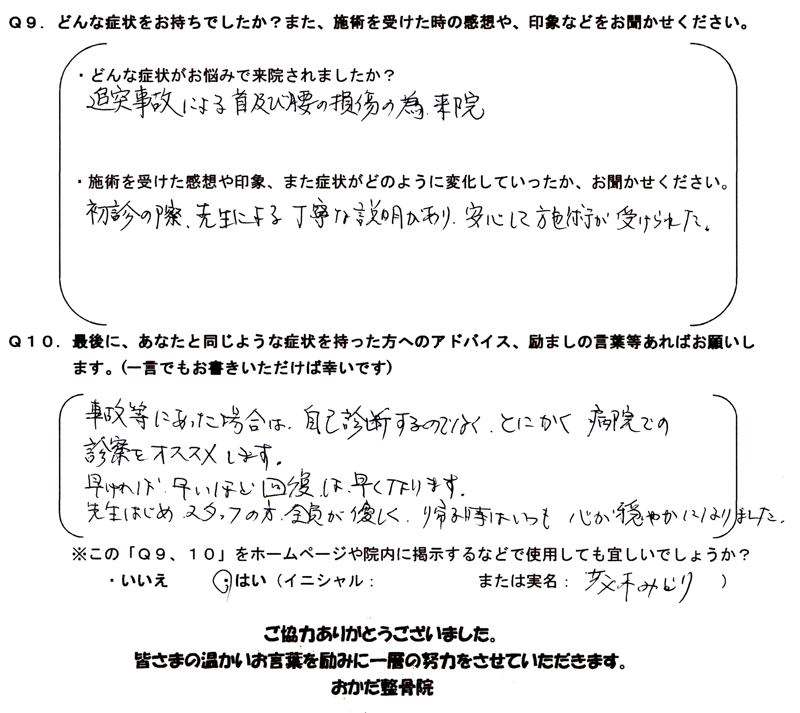 Q9．どんな症状をお持ちでしたか？また、施術を受けた時の感想や、印象などをお聞かせください。
・どんな症状がお悩みで来院されましたか？
追突事故による首及び腰の損傷の為、来院
・施術を受けた感想や印象、また症状がどのように変化していったか、お聞かせください。
初診の際、先生による丁寧な説明があり、安心して施術が受けられた。
Q10．最後に、あなたと同じような症状を持った方へのアドバイス、励ましの言葉等あればお願いし
ます。(一言でもお書きいただけば幸いです)
事故等にあった場合は、自己診断するのではなく、とにかく病院での
診察をオススメします。
早ければ早いほど回復は早くなります。
先生はじめスタッフの方、全員が優しく、帰る時はいつも心が穏やかになりました。
※この「Q9、10」をホームページや院内に掲示するなどで使用しても宜しいでしょうか？
・いいえ ・はい（イニシャル： または実名： みどり ）
ご協力ありがとうございました。
皆さまの温かいお言葉を励みに一層の努力をさせていただきます。
おかだ整骨院